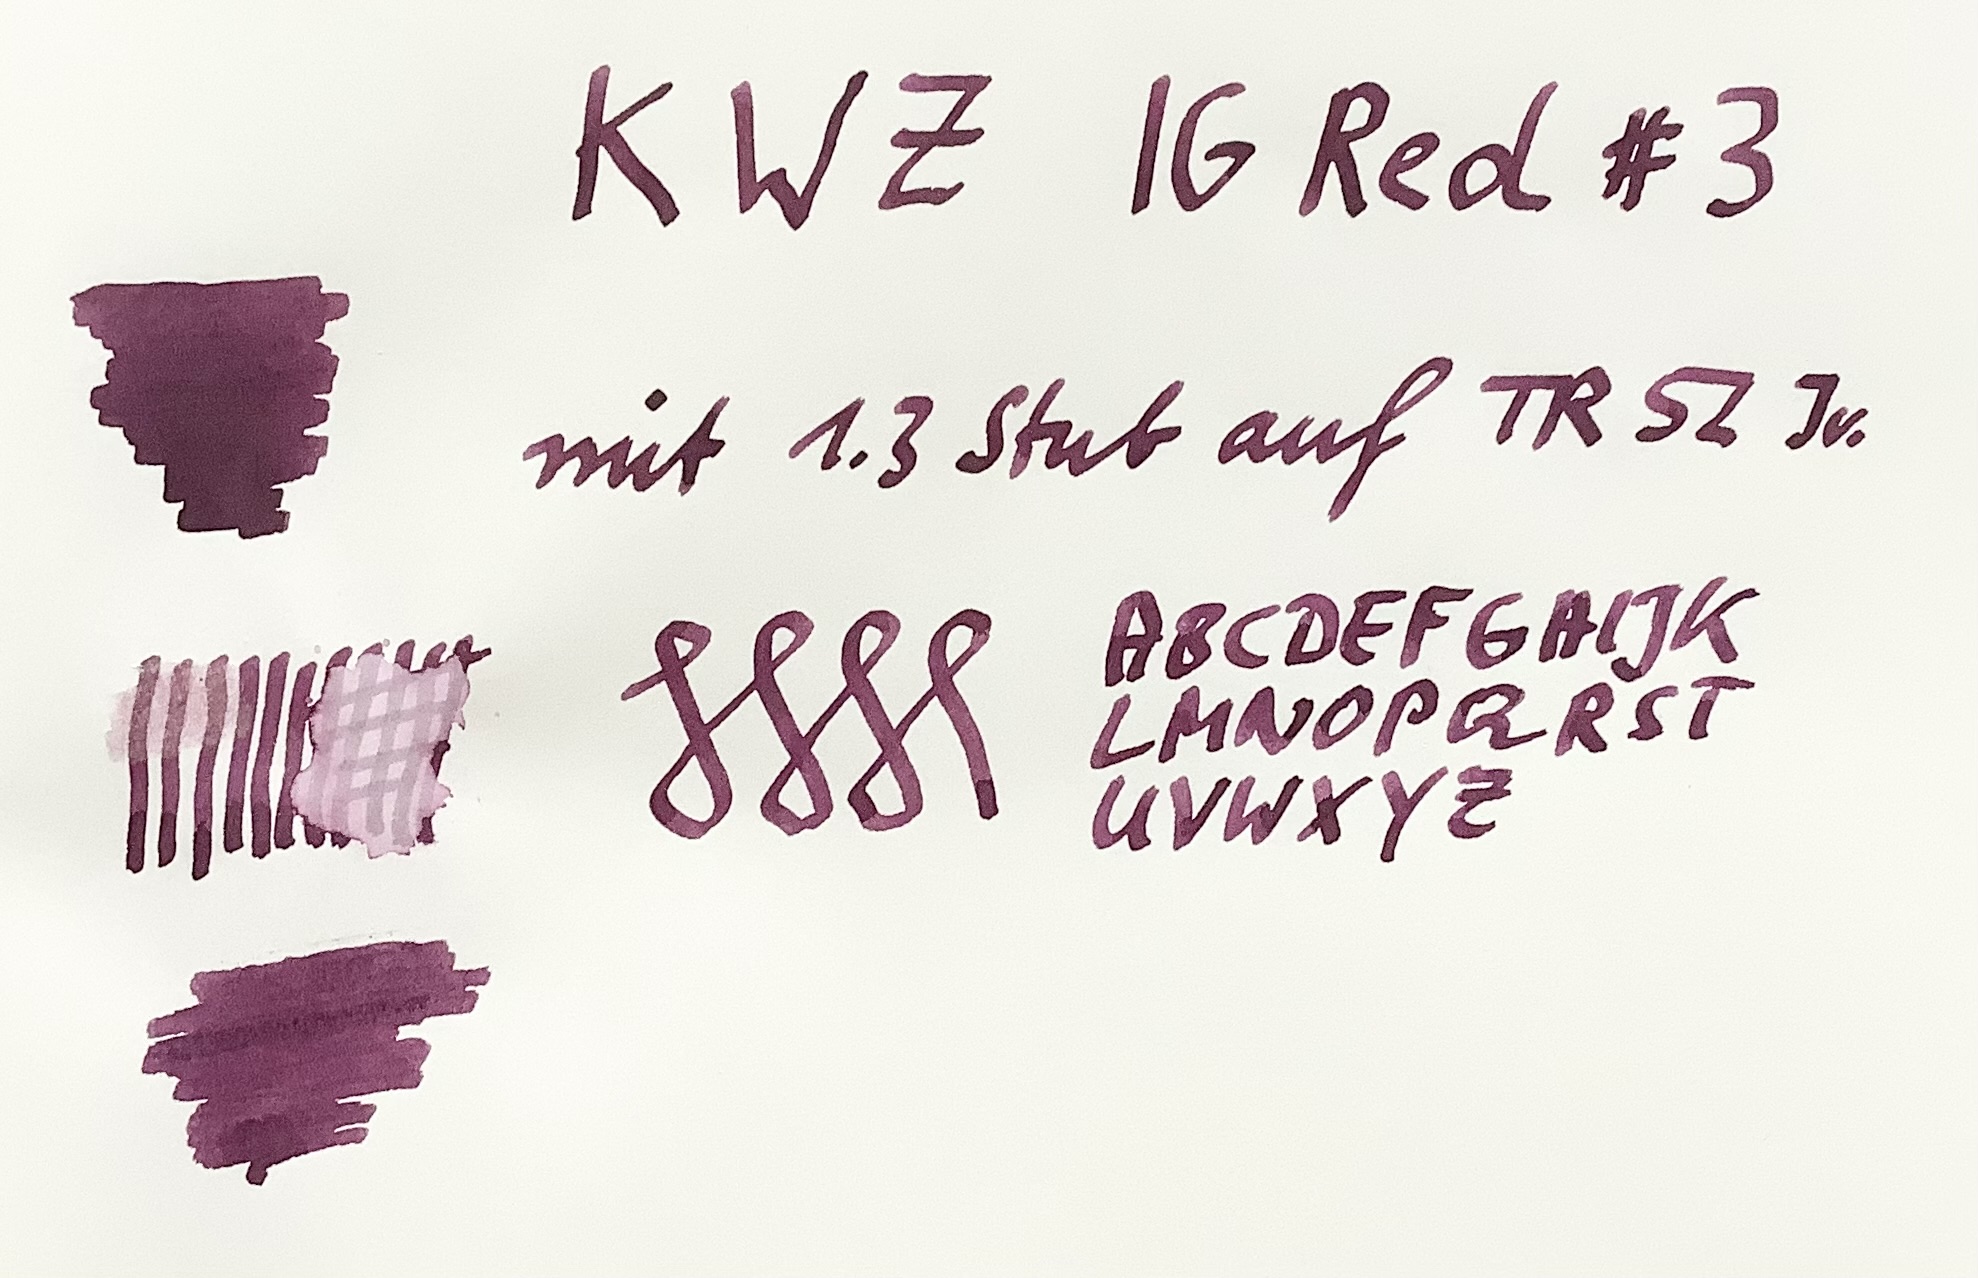 KWZ IG Red #3
mit 1.3 Stub auf TR SZ Iv.
ABCDEFGHIJK
LMNOPQRST
UVWXYZ